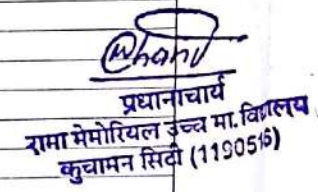 प्रधानाचार्य
रामा मेमोरियल उच्च मा. विद्यालय
कुचामन सिटी (1190516)